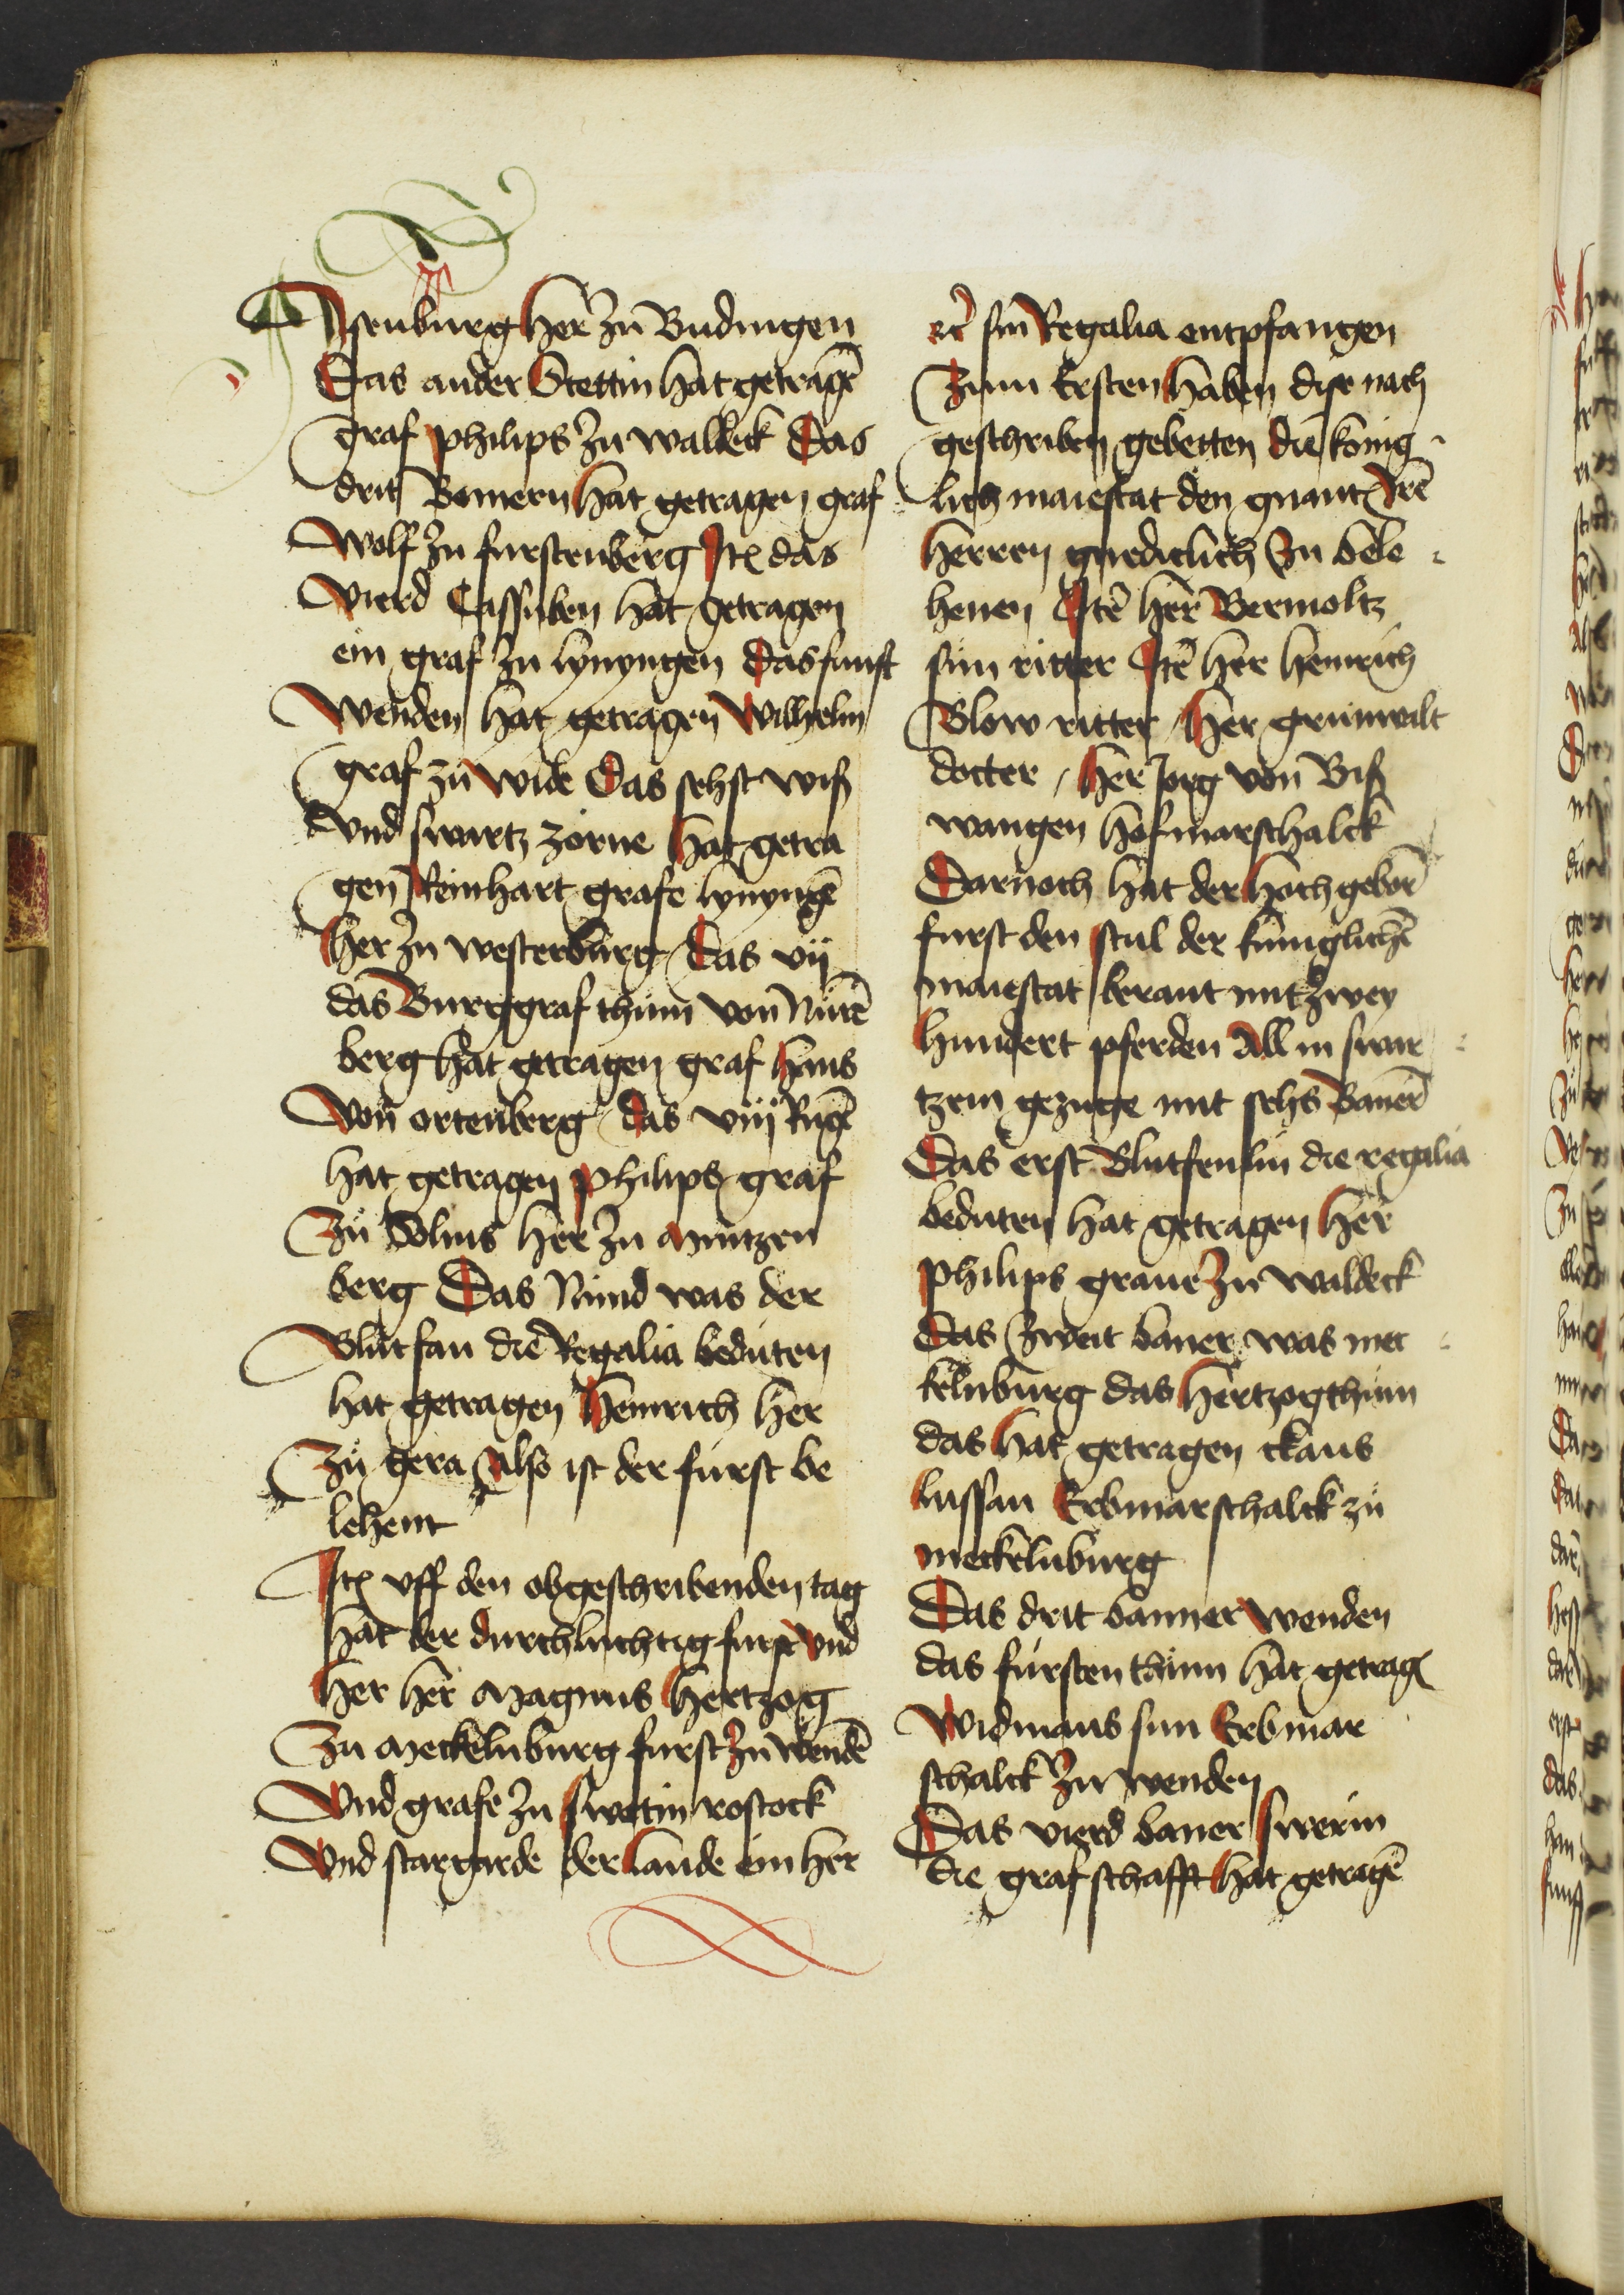 Ysenburg her zu Budingen
Das ander Stettin hat getragē
graf philips zu walleck Das
drit Bomern hat getragen graf
Wolf zu furstenberg Itē das
vierd Cassuben hat getragen
ein graf zu lynyngen das funft
Wenden hat getragen Wilhelm
graf zu wide Das sehst wiß
vnd swartz zorne hat getra
gen Reinhart grafe lynyngē
her zu westerburg Das vij
das Burggraf thum von Nurē
berg hat getragen graf hans
von ortenberg das viij Rugē
hat getragen philips graf
zu Solms her zu Mintzen
berg Das Nund was der
Blutfan die Regalia beduten
hat getragen heinrich her
zu gera Also ist der furst be
lehent
Itē vff den obgeschribenden tag
hat der durchluchtig furst vnd
her her Magnus hertzog
zu Meckelnburg furst zu wendē
vnd grafe zu swerin rostock
vnd stargarde der lande ein her
etc̄ sin Regalia entpfangen
Zum Ersten haben dise nach
geschriben gebetten die konig
lich maiestat den gnant irē
herren gnediclich zu bele
henen Itē her Bernoltz
sun ritter Itē her heinrich
Blow ritter her grunwalt
docter, her Jorg von Biß
wangen hofmarschalck
Darnoch hat der hochgeborē
furst den stul der kuniglichē
maiestat berant mit zwey
hundert pferden All in swar
tzem gezuge mit sehs Banerē
Das erst Blutfenlin die regalia
beduten hat getragen her
philips graue zu waldeck
Das zweit baner was mec
kelnburg das hertzogthum
das hat getragen claus
lussan Erbmarschalck zu
meckelnburg
Das drit banner wenden
das fursten thum hat getragē
Widmans sun Erbmar
schalck zu wenden
Das vierd baner swerin
die grafschafft hat getragē